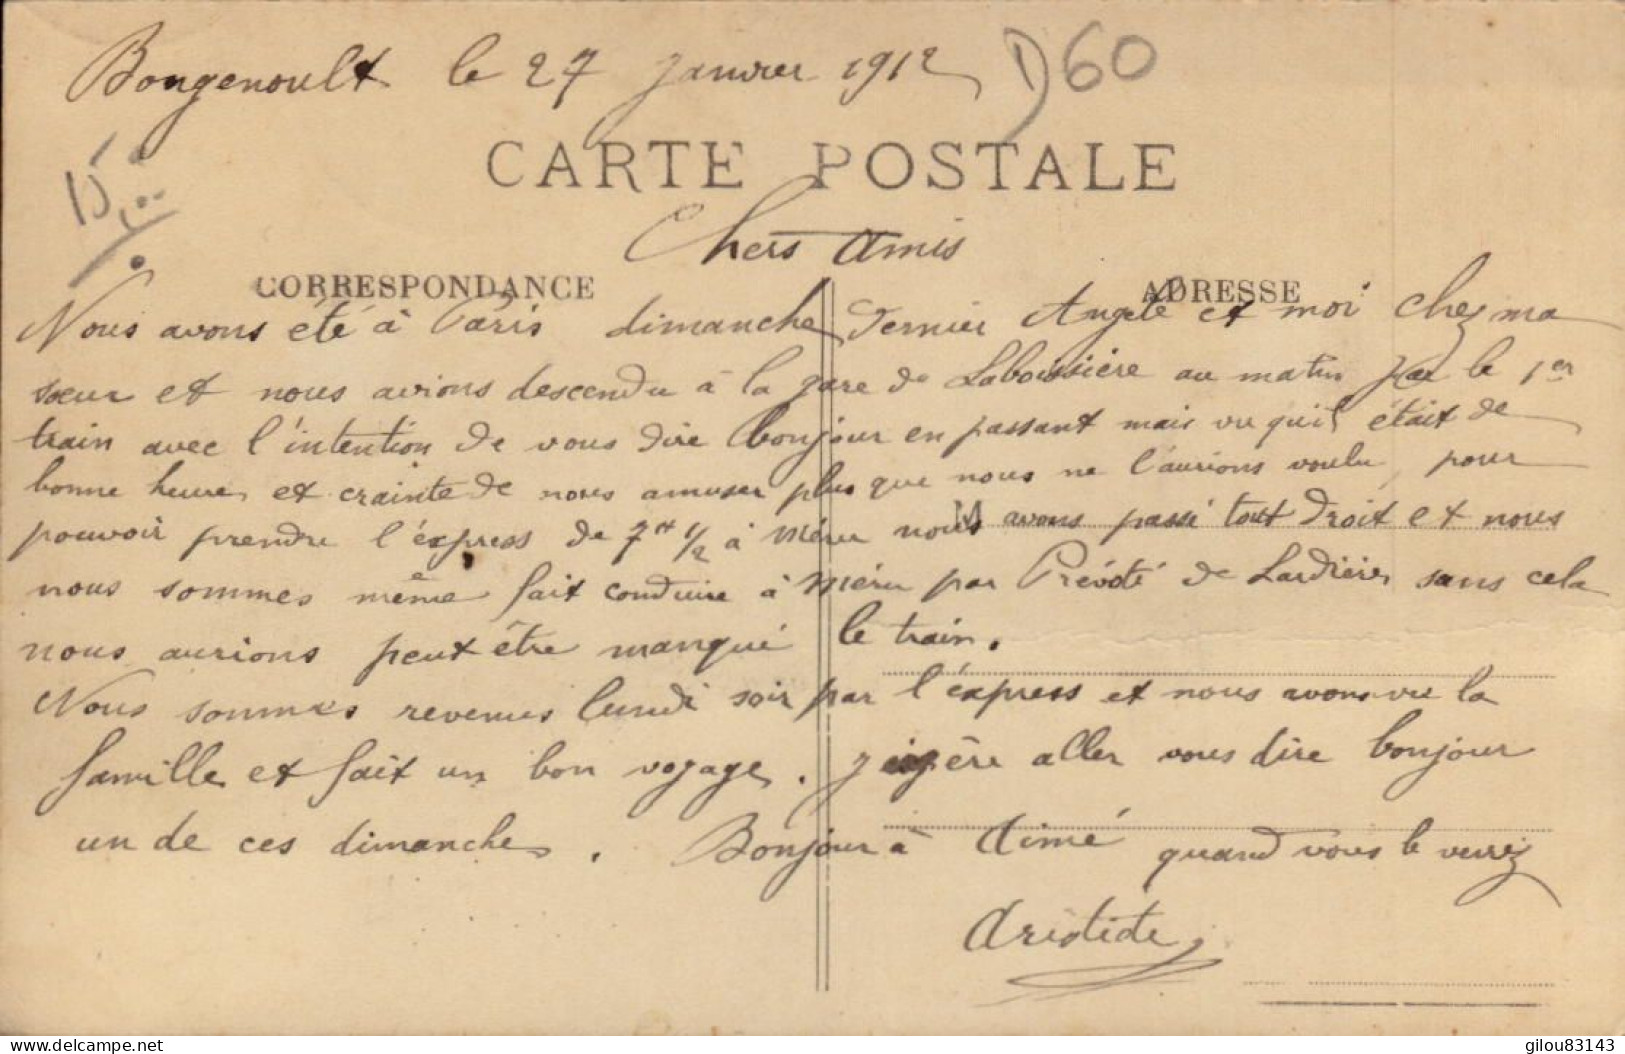 Bongenoult le 27 Janvier 1912
D60
15,00
CARTE POSTALE
Chers Amis
CORRESPONDANCE ADRESSE
Nous avons été à Paris dimanche dernier Angèle et moi chez ma
sœur et nous avions descendu à la gare de Laboissière au matin par le 1er
train avec l'intention de vous dire bonjour en passant mais vu qu'il était de
bonne heure et crainte de nous amuser plus que nous ne l'aurions voulu, pour
pouvoir prendre l'éxpress de 7h 1/2 à Méru nous avons passé tout droit et nous
nous sommes même fait conduire à Méru par Prévoté de Lardières sans cela
nous aurions peut être manqué le train.
Nous sommes revenus lundi soir par l'éxpress et nous avons vu la
famille et fait un bon voyage. J'éspère aller vous dire bonjour
un de ces dimanches. Bonjour à Aimé quand vous le verrez
Aristide
delcampe.net gilou83143